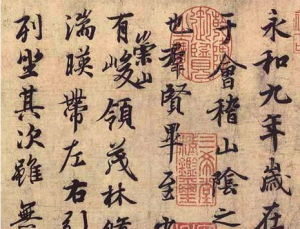 永和九年歲在
于會稽山陰之
也羣賢畢至
有崇山峻領茂林
湍暎帶左右引
列坐其次雖無
三希堂
精鑑璽